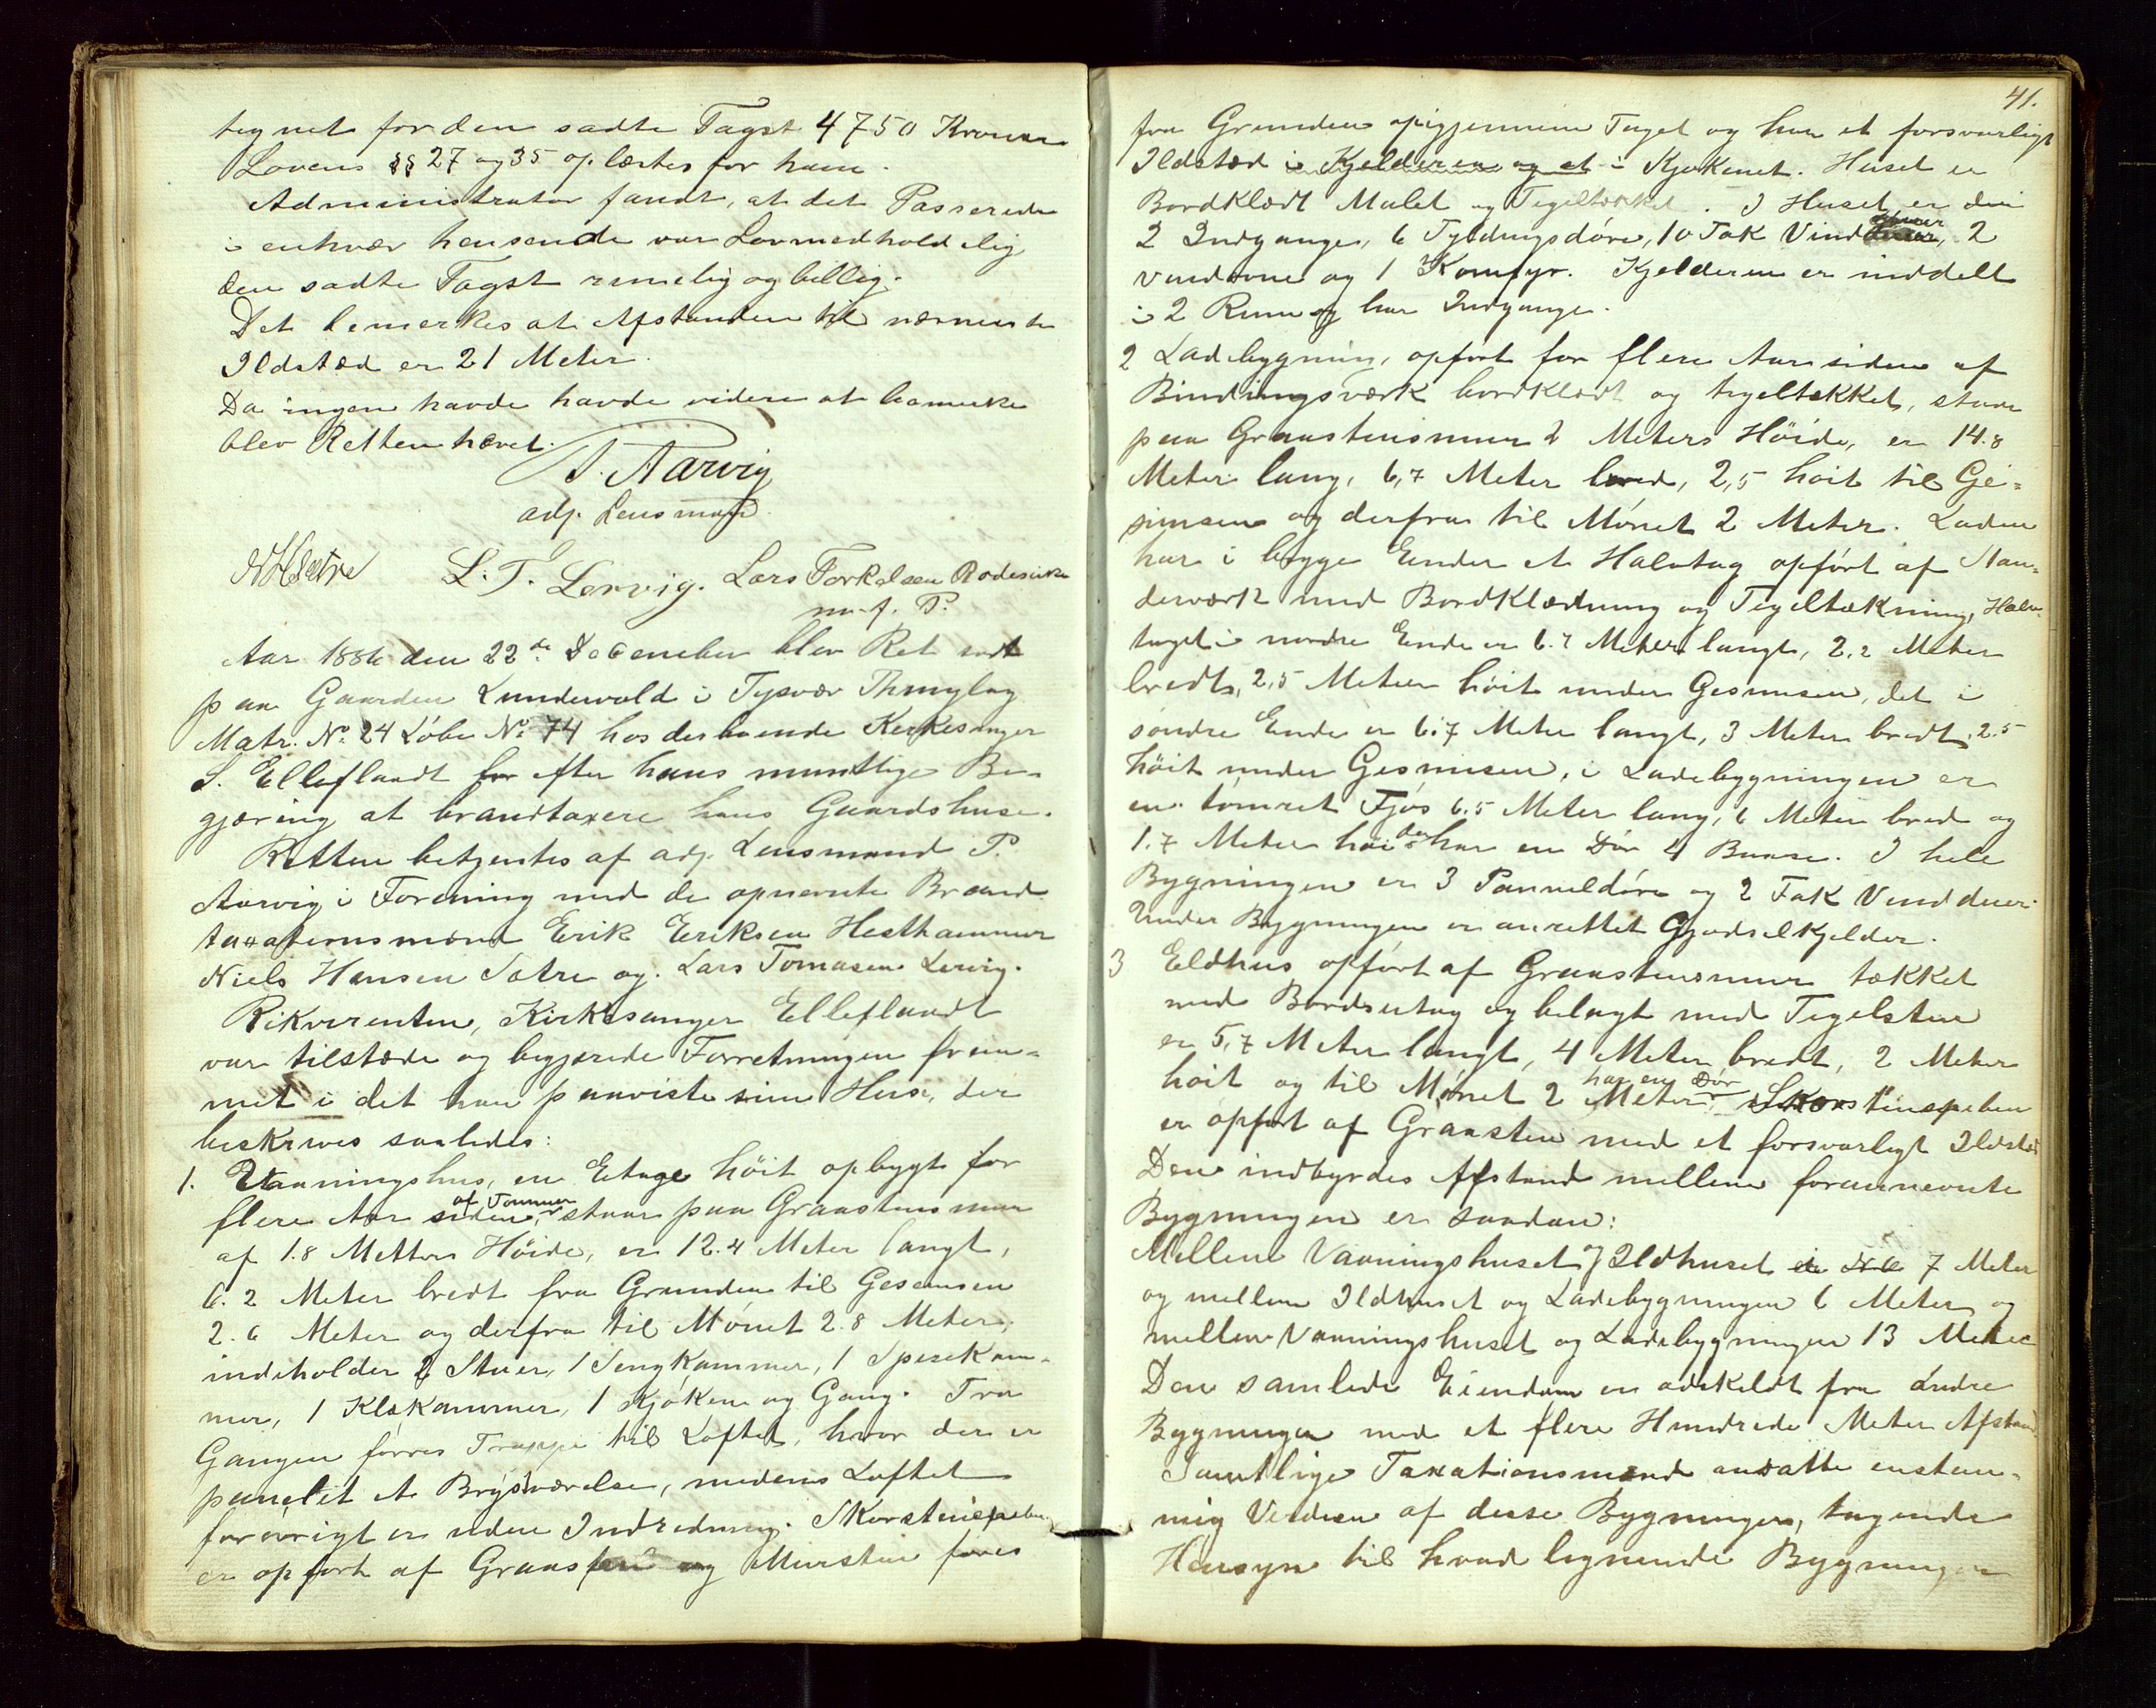 tegnet for den sadte Taxst 4750 Kroner
Lovens §§ 27 og 35 oplæstes for ham.
Administrator fandt, at det Passerede
i enhver henseende var Lovmedholdelig
den sadte Taxst rimelig og billig.
Det bemerkes at Afstanden til nærmeste
Ildstæd er 21 Meter.
Da ingen havde havde videre at bemerke
blev Retten hævet.
P. Aarvig
adj. Lensmand
NHSætre L. T. Lervig. Lars Torkelsen
m. f. P.
Aar 1886 den 22de December blev Ret sadt
paa Gaarden Lundevold i Tysvær Thinglag
Matr. No. 24 Løbe No. 74 hos derboende Kirkesanger
S. Elleflaadt for efter hans mundtlige Be-
gjæring at brandtaxere hans Gaardshuse.
Retten betjentes af adj. Lensmand P.
Aarvig i Forening med de opnævnte Brand
taxationsmænd Erik Eriksen Hesthammer
Niels Hansen Sætre og Lars Tomasen Lervig.
Rikvirenten, Kirkesanger Elleflaadt
var tilstæde og begjærede Forretningen frem-
met i det han paaviste sine Huse, der
beskrives saaledes:
1. Vaaningshus, en Etage höit opbygt for
flere Aar siden, af Tømmer staar paa Graastensmur
af 1.8 Metters Höide, er 12.4 Meter langt,
6.2 Meter bredt fra Grunden til Gesemsen
2.6 Meter og derfra til Mønet 2.8 Meter,
indeholder 2 Stuer, 1 Sengkammer, 1 Spisekam-
mer, 1 Klækammer, 1 Kjøken og Gang. Fra
Gangen førres Trappe til Loftet, hvor der er
panelet et Brystværelse, medens Loftet
forøvrigt er uden Indredning. Skorstenspiben
er opført af Graasten og Mursten føres
41.
fra Grunden opigjennem Taget og har et forsvarligt
Ildstæd i Kjelderen og et i Kjøkenet. Huset er
Bordklædt Malet og Tegeltækket. I Huset er der
2 Indgange, 6 Fyldingsdøre, 10 Fak Vindduer, 2
vindovne og 1 Komfyr. Kjelderen er inddelt
i 2 Rum og har Indgange.
2 Ladebygning, opført for flere Aar siden af
Bindingsværk bordklædt og tegeltækket, staar
paa Graastensmur 2 Meters Höide, er 14.8
Meter lang, 6,7 Meter bred, 2,5 höit til Ge-
simsen og derfra til Mønet 2 Meter. Laden
har i begge Ender et Halvtag opført af Stan-
derværk med Bordklædning og Tegeltækning, Halv-
taget i nordre Ende er 6.7 Meter langt, 2,2 Meter
bredt, 2,5 Meter höit under Gesmisen, det i
søndre Ende er 6.7 Meter langt, 3 Meter bredt, 2.5
höit under Gesmisen, i Ladebygningen er
en tømret Fjøs 6.5 Meter lang, 6 Meter bred og
1.7 Meter höi der har en Dør 4 Baase. I hele
Bygningen er 3 Panneldøre og 2 Fak Vindduer.
Under Bygningen er anrettet Gjødselkjelder.
3 Eldhus opført af Graastensmur tækket
med Bordsutag og belagt med Tegelsten
er 5,7 Meter langt, 4 Meter bredt, 2 Meter
höit og til Mønet 2 Meter, har en Dør Skorstenspiben
er opført af Graasten med et forsvarligt Ildsted
Den indbyrdes Afstand mellem forannevnte
Bygninger er saadan:
Mellem Vaaningshuset og Ildhuset er 7 Meter
og mellem Ildhuset og Ladebygningen 6 Meter og
mellem Vaaningshuset og Ladebygningen 13 Meter
Den samlede Eiendom er adskeldt fra andre
Bygninger med et flere Hundrede Meter Afstand
Samtlige Taxationsmænd ansatte enstem-
mig Verdien af disse Bygninger, tagende
Hensyn til hvad lignende Bygninger